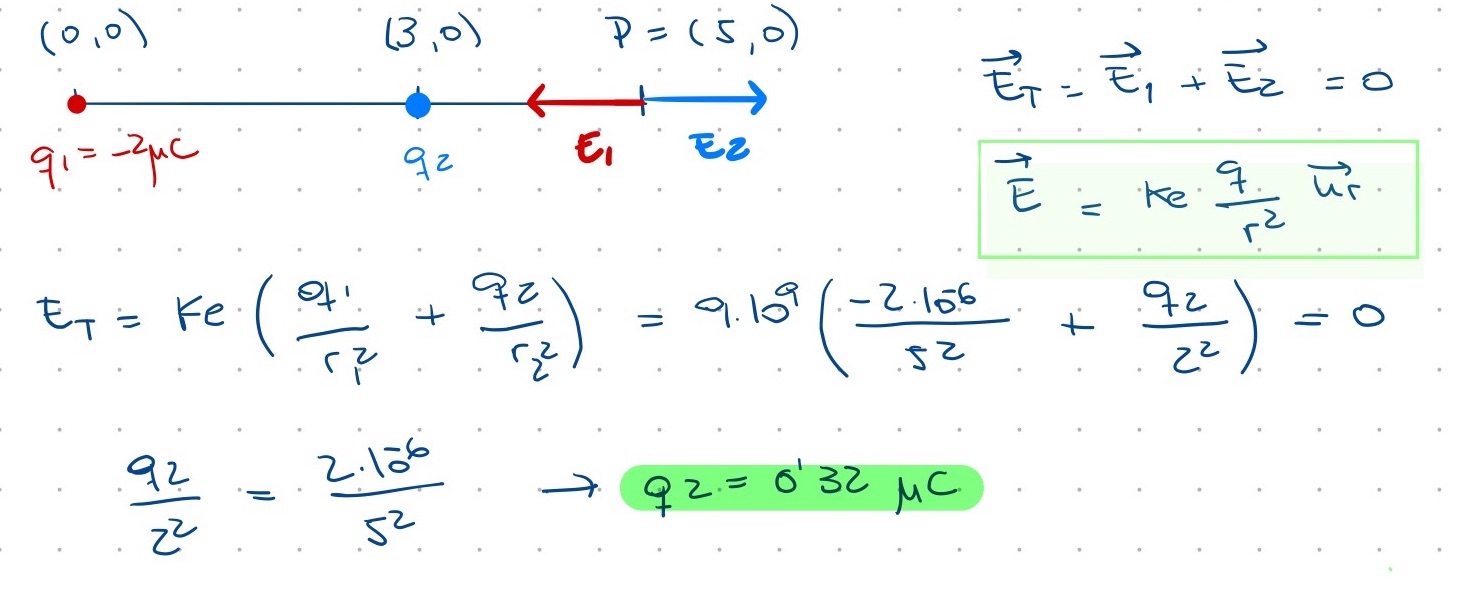 (0,0) (3,0) P = (5,0)
q₁ = -2μC q₂ E₁ E₂
E⃗_T = E⃗₁ + E⃗₂ = 0
E⃗ = Ke q/r² u⃗r
E_T = Ke (q₁/r₁² + q₂/r₂²) = 9·10⁹ (-2·10⁻⁶/5² + q₂/2²) = 0
q₂/2² = 2·10⁻⁶/5² → q₂ = 0'32 μC